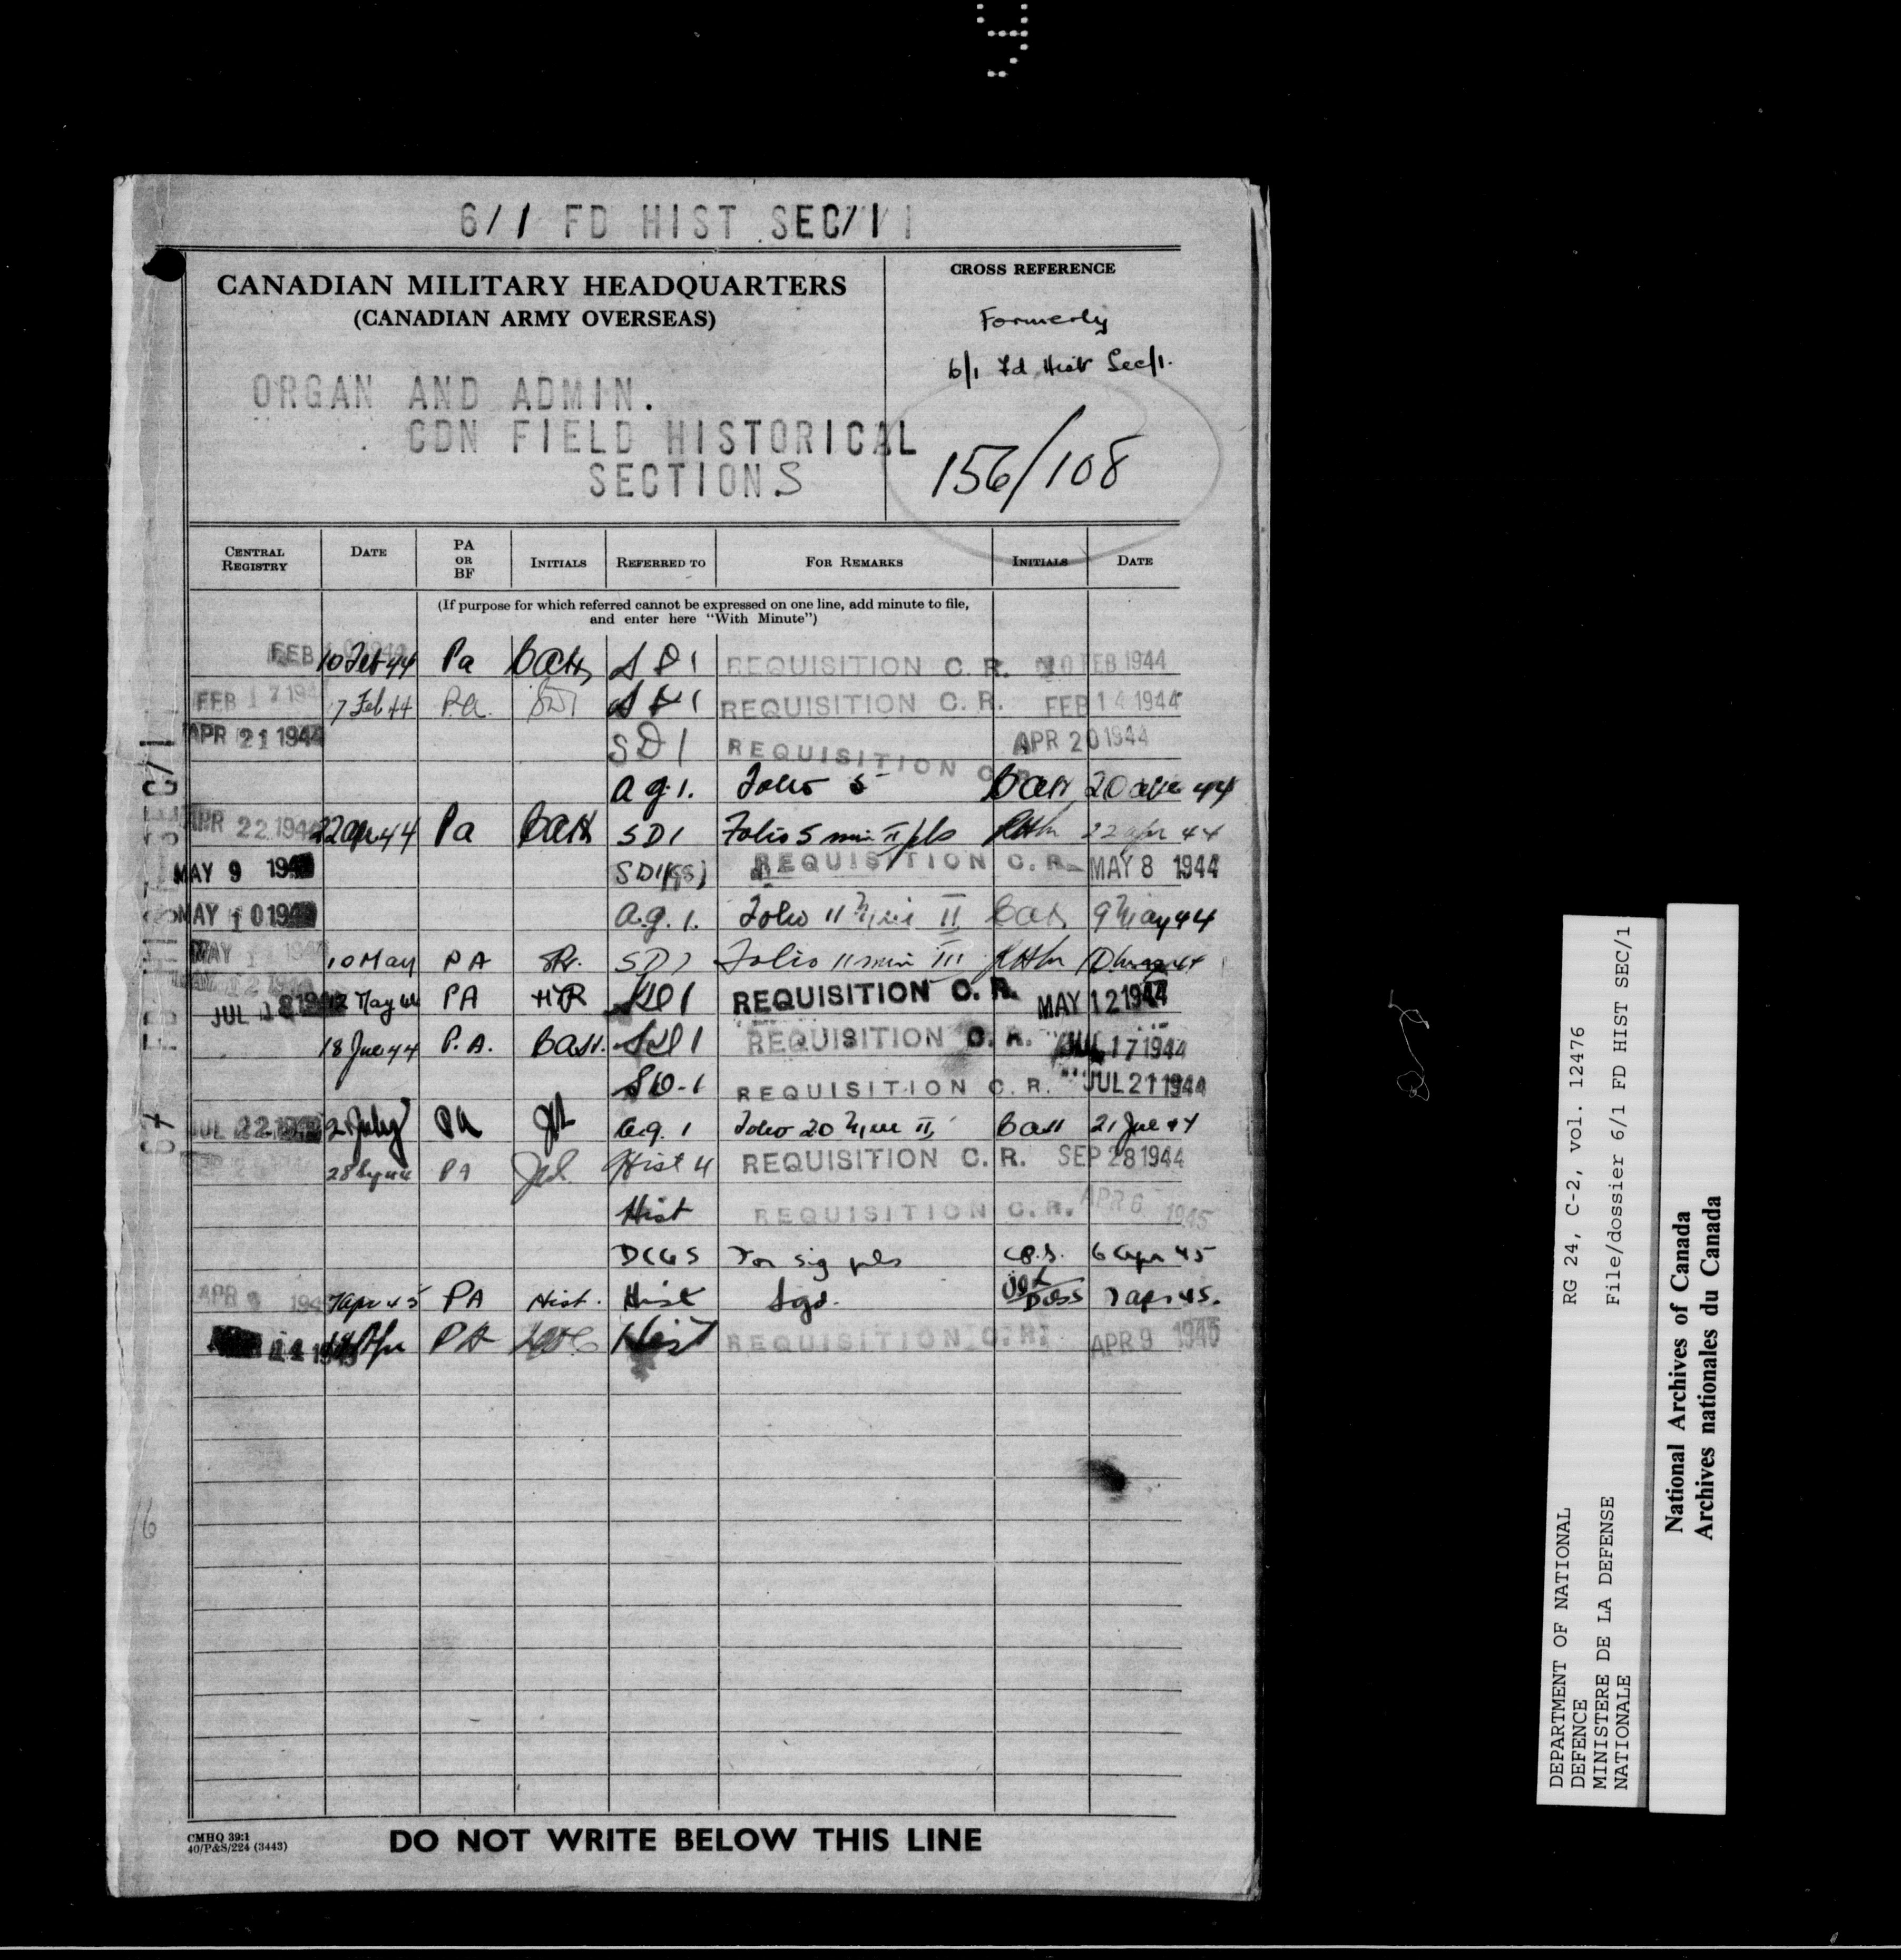 6/1 FD HIST SEC/1
CANADIAN MILITARY HEADQUARTERS
(CANADIAN ARMY OVERSEAS)
ORGAN AND ADMIN.
CDN FIELD HISTORICAL
SECTIONS
CROSS REFERENCE
Formerly
6/1 Fd Hist Sec/1.
156/108
CENTRAL REGISTRY DATE PA OR BF INITIALS REFERRED TO FOR REMARKS INITIALS DATE
(If purpose for which referred cannot be expressed on one line, add minute to file,
and enter here "With Minute")
FEB 10 Feb 44 Pa SD1 REQUISITION C. R. 10 FEB 1944
FEB 17 194 17 Feb 44 P.A. SD1 SD1 REQUISITION C. R. FEB 14 1944
APR 21 1944 SD1 REQUISITION C. R. APR 20 1944
a.g.1. Folio 5 20 44
APR 22 1944 22 Apr 44 Pa SD1 Folio 5 min II pls 22 Apr 44
MAY 9 194 SD1(GS) REQUISITION C. R. MAY 8 1944
MAY 10 194 a.g.1. Folio 11 Min II 9 May 44
MAY 11 194 10 May PA SD1 Folio 11 min III
MAY 12 1944 12 May 44 PA SD1 REQUISITION C. R. MAY 12 1944
JUL 18 194 18 44 P.A. SD1 REQUISITION C. R. JUL 17 1944
SD-1 REQUISITION C. R. JUL 21 1944
JUL 22 194 July PA a.g.1 Folio 20 Min II 21 44
28 Sep 44 PA Hist 4 REQUISITION C. R. SEP 28 1944
Hist REQUISITION C. R. APR 6 1945
DCGS For sig pls 6 Apr 45
APR 9 194 7 Apr 45 PA Hist. Hist Sgd. 7 Apr 45.
14 194 Apr PA Hist REQUISITION C. R. APR 9 1945
CMHQ 39:1
40/P&S/224 (3443)
DO NOT WRITE BELOW THIS LINE
16
DEPARTMENT OF NATIONAL
DEFENCE
MINISTERE DE LA DEFENSE
NATIONALE
RG 24, C-2, vol. 12476
File/dossier 6/1 FD HIST SEC/1
National Archives of Canada
Archives nationales du Canada